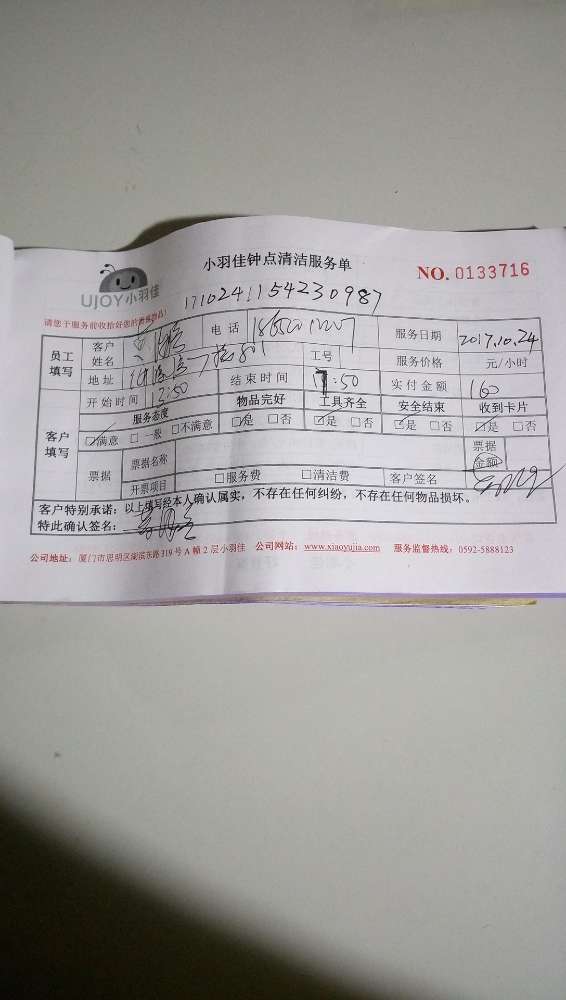 小羽佳钟点清洁服务单
NO. 0133716
UJOY小羽佳
1710241154230987
请您于服务前收拾好您的贵重物品!
员工填写 客户姓名 电话 服务日期 2017.10.24
地址 工号 服务价格 元/小时
开始时间 13:50 结束时间 17:50 实付金额 160
客户填写 服务态度 物品完好 工具齐全 安全结束 收到卡片
☑满意 □一般 □不满意 ☑是 □否 ☑是 □否 ☑是 □否 ☑是 □否
票据 票据名称 票据金额
开票项目 □服务费 □清洁费 客户签名
客户特别承诺:以上填写经本人确认属实,不存在任何纠纷,不存在任何物品损坏。
特此确认签名:
公司地址:厦门市思明区湖滨东路319号A幢2层小羽佳 公司网站:www.xiaoyujia.com 服务监督热线:0592-5888123